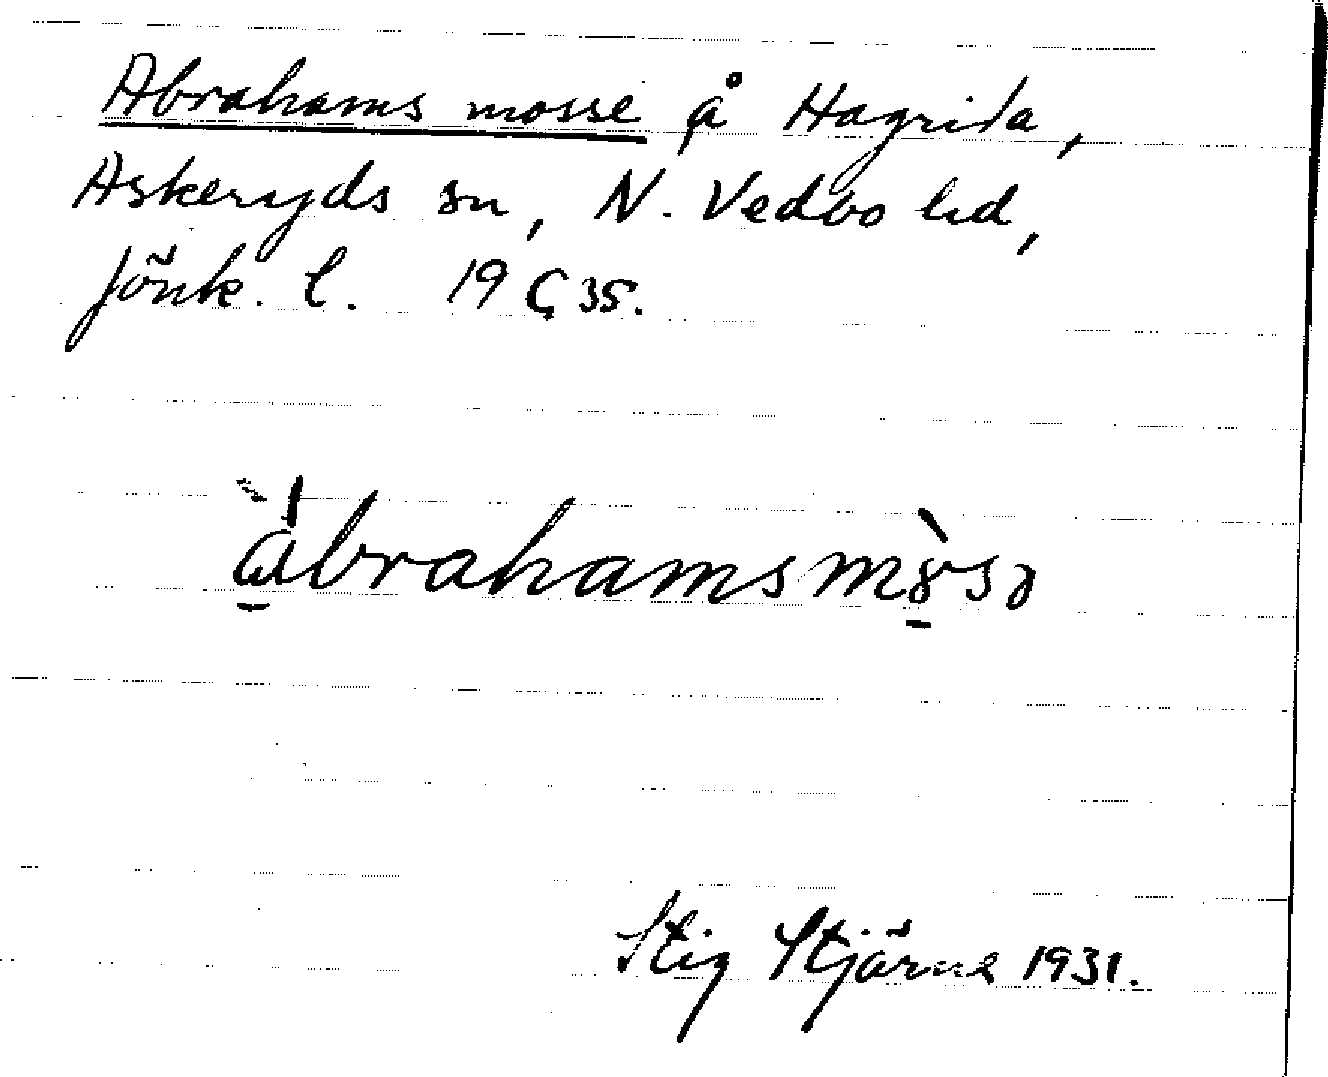 Abrahams mosse å Hagrida,
Askeryds sn, N. Vedbo hd,
Jönk. l. 19 Ç 35.
àbrahamsmòsə
Stig Stjärne 1931.